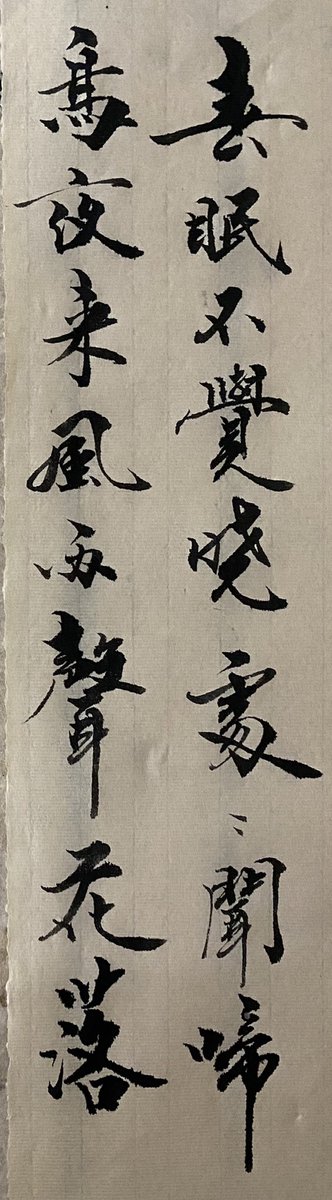 春眠不覺曉處〻聞啼
鳥夜来風雨聲花落